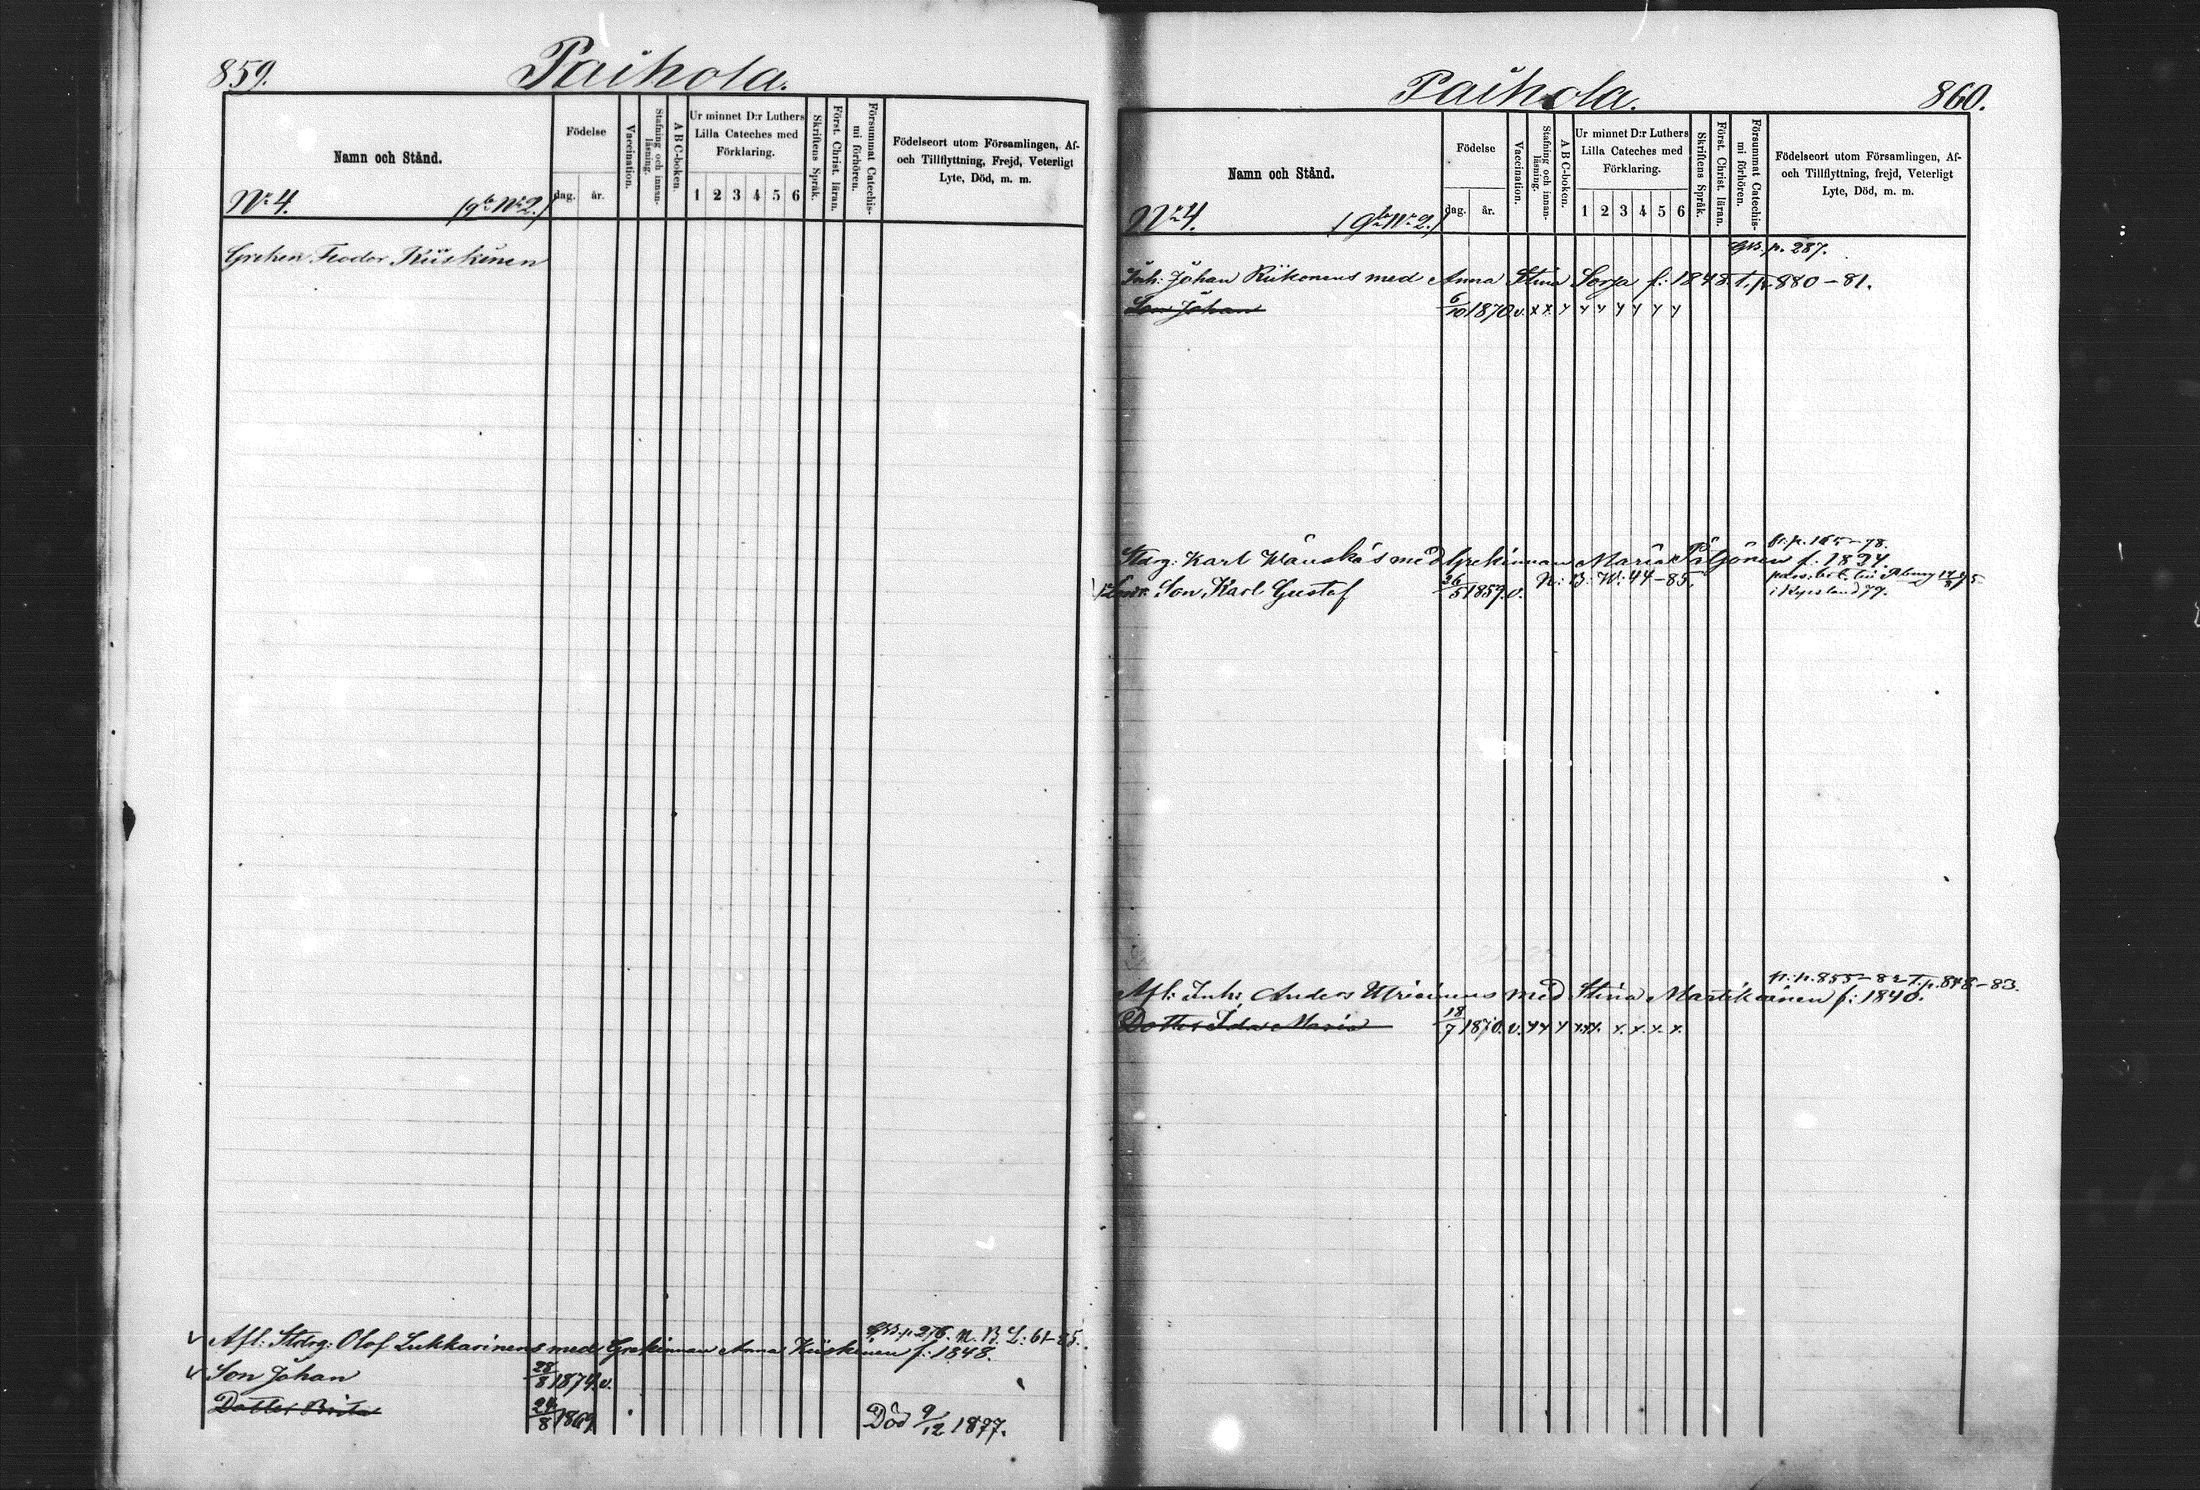 859.
Paihola.
Namn och Stånd.
Födelse
dag.
år.
Vaccination.
Stafning och innan-
läsning.
ABC-boken.
Ur minnet D:r Luthers
Lilla Cateches med
Förklaring.
1 2 3 4 5 6
Skriftens Språk.
Först. Christ. läran.
Försummat Catechis-
mi förhören.
Födelseort utom Församlingen, Af-
och Tillflyttning, Frejd, Veterligt
Lyte, Död, m. m.
No 4.
(gla No 2.)
Greken Feodor Kiiskinen
GB. p. 276. N. B. L: 61-85.
Afl: Stdrg: Olof Lukkarinens med Grekinnan Anna Kiiskinen f: 1848.
Son Johan 28/8 1874. v.
Dotter Brita 24/8 1869 Död 9/12 1877.
Paihola.
860.
Namn och Stånd.
Födelse
dag.
år.
Vaccination.
Stafning och innan-
läsning.
ABC-boken.
Ur minnet D:r Luthers
Lilla Cateches med
Förklaring.
1 2 3 4 5 6
Skriftens Språk.
Först. Christ. läran.
Försummat Catechis-
mi förhören.
Födelseort utom Församlingen, Af-
och Tillflyttning, frejd, Veterligt
Lyte, Död, m. m.
No 4.
(gla No 2.)
GB. p. 287.
Inh: Johan Riikonens med Anna Stina Sorsa f: 1848. T. p. 880-81.
Son Johan 6/10 1870 v. x x y y y y y y y
fr. p. 165-78.
Stdrg: Karl Wänskä's med Grekinnan Maria Pöljönen f: 1824.
Son Karl Gustaf 26/5 1859. v. N: B: W: 44-85.
i Ryssland 79.
fr. p. 855-82 T. p. 848-83.
Afl: Inh: Anders Uriainens med Stina Martikainen f: 1840.
Dotter Ida Maria 18/7 1870. v. y y y x x x. x. x. x. x.